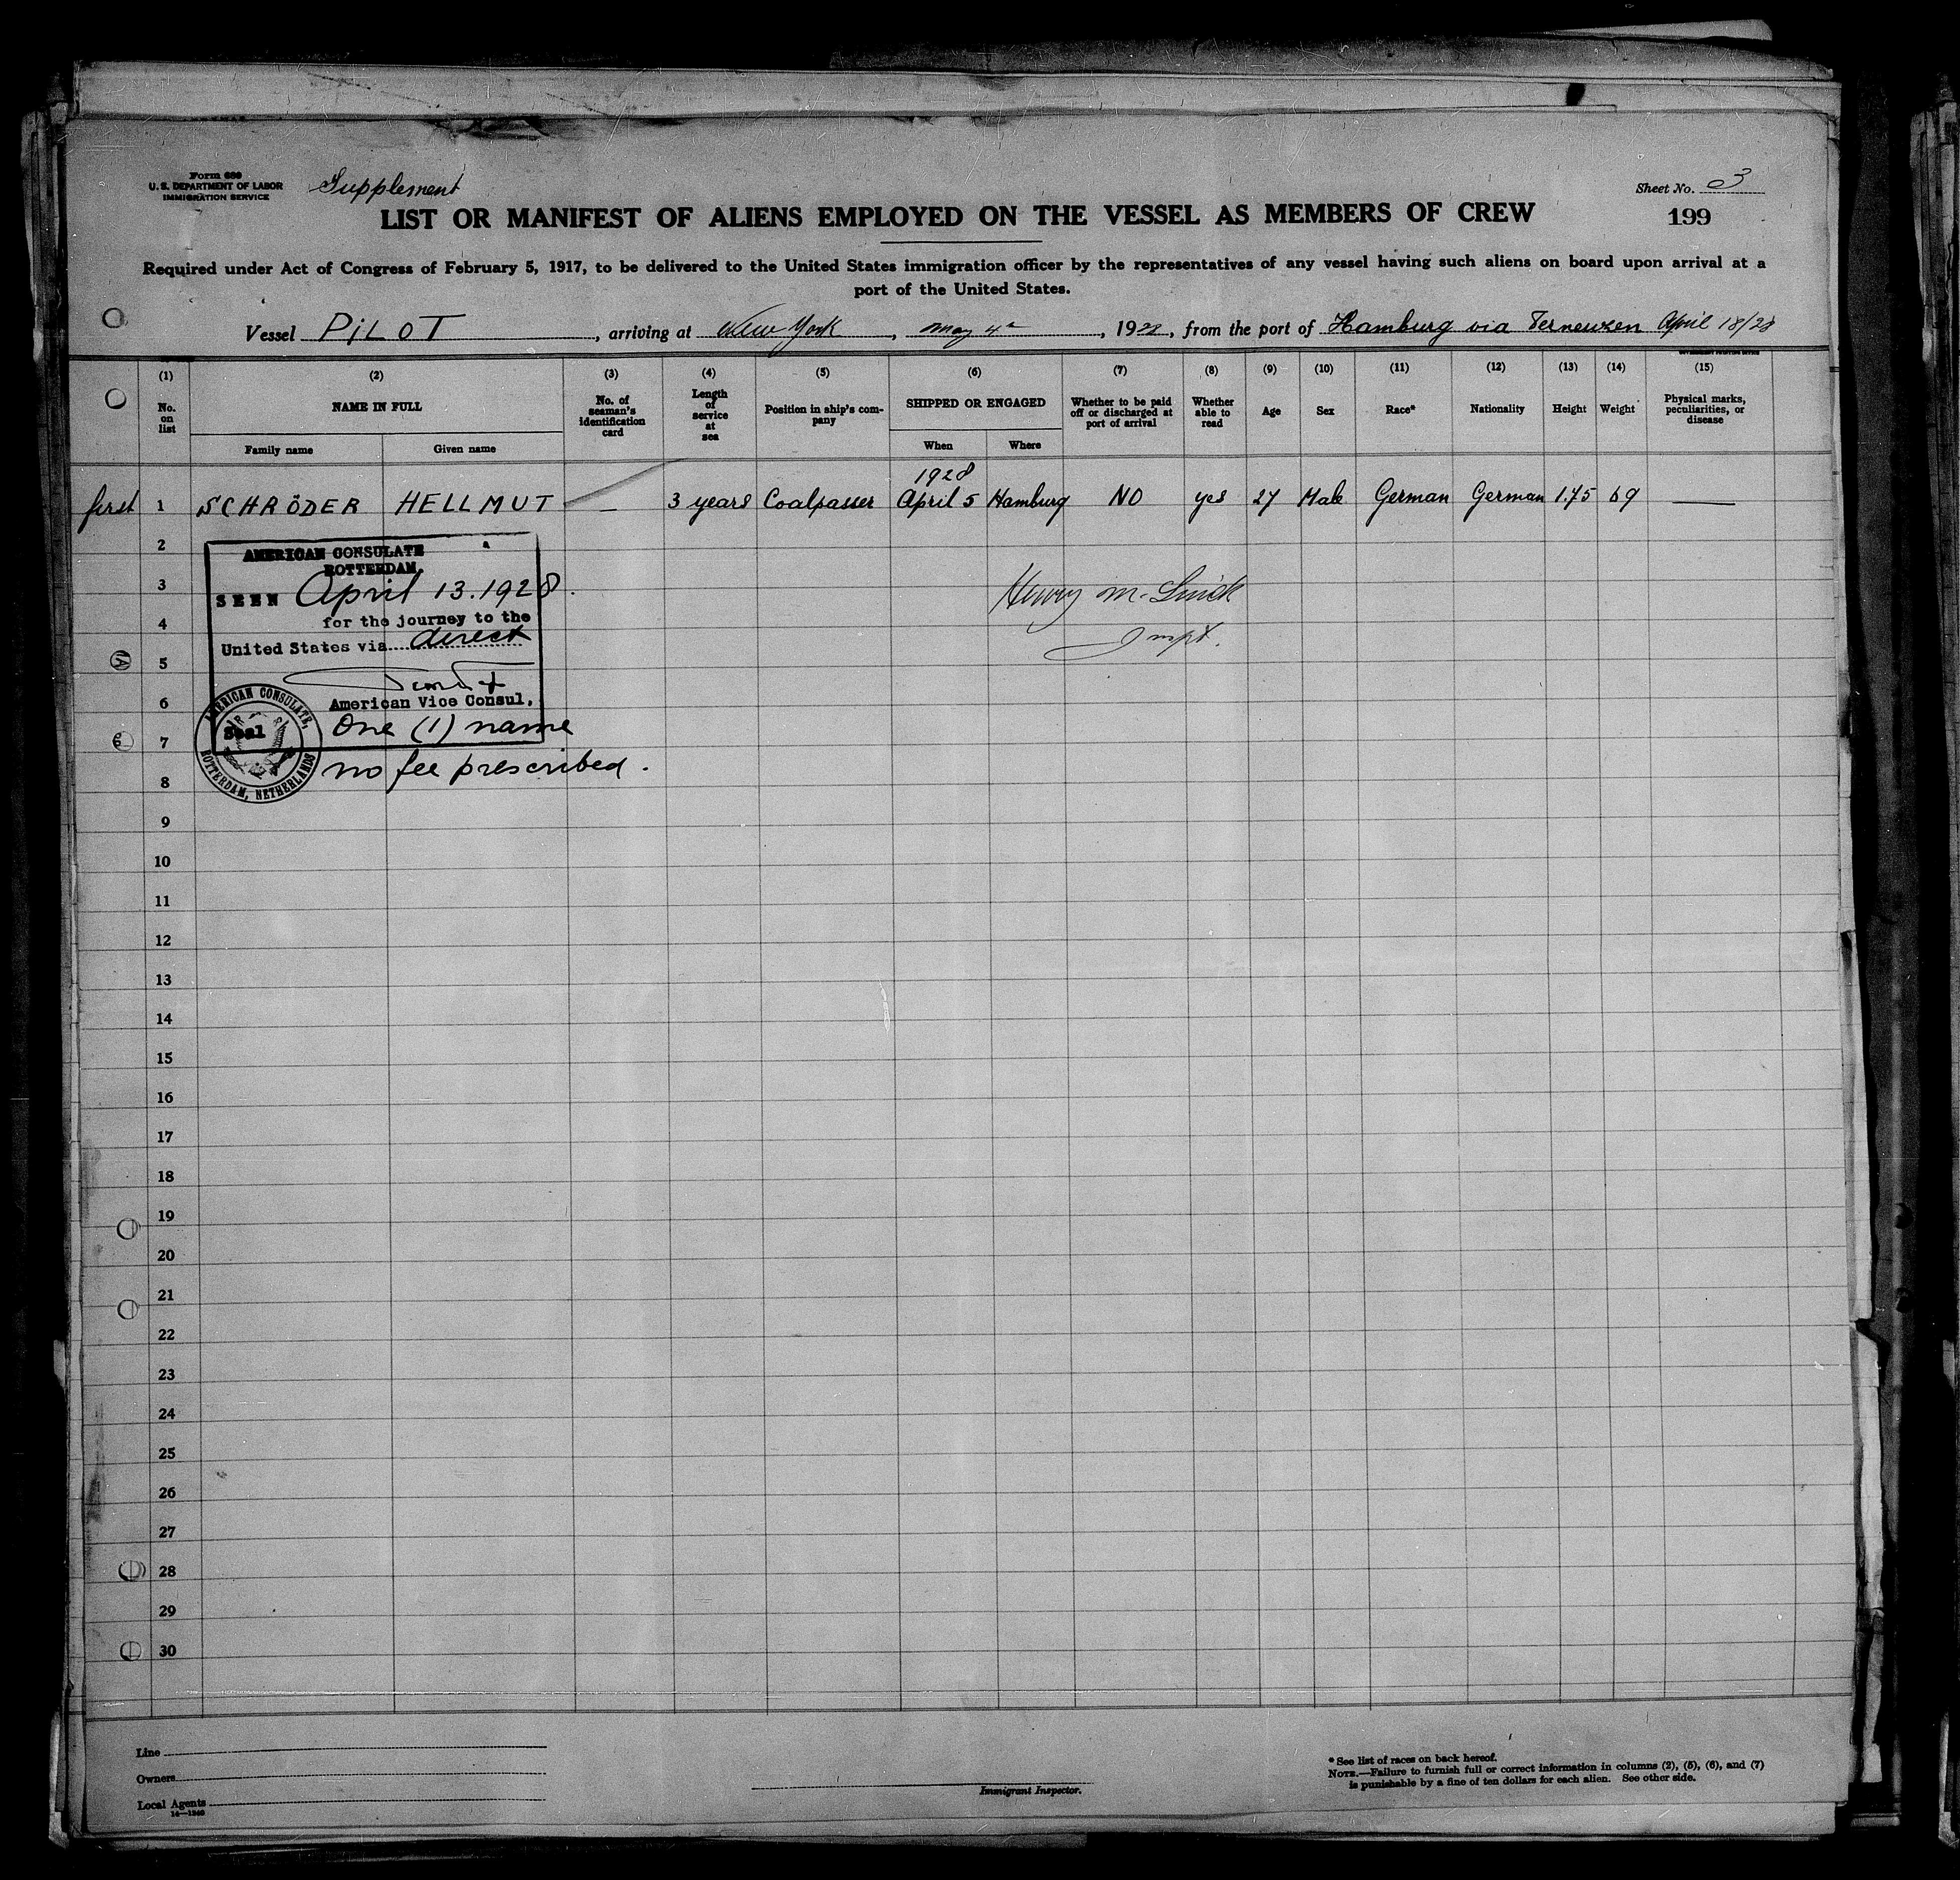 Form 680
U. S. DEPARTMENT OF LABOR
IMMIGRATION SERVICE
Supplement
Sheet No. 3
LIST OR MANIFEST OF ALIENS EMPLOYED ON THE VESSEL AS MEMBERS OF CREW
199
Required under Act of Congress of February 5, 1917, to be delivered to the United States immigration officer by the representatives of any vessel having such aliens on board upon arrival at a
port of the United States.
Vessel PiLOT, arriving at New York, May 4th, 1928, from the port of Hamburg via Terneuzen April 18/28
GOVERNMENT PRINTING OFFICE
(1) (2) (3) (4) (5) (6) (7) (8) (9) (10) (11) (12) (13) (14) (15)
No. on list
NAME IN FULL
Family name
Given name
No. of seaman's identification card
Length of service at sea
Position in ship's company
SHIPPED OR ENGAGED
When
Where
Whether to be paid off or discharged at port of arrival
Whether able to read
Age
Sex
Race*
Nationality
Height
Weight
Physical marks, peculiarities, or disease
1928
first 1 SCHRÖDER HELLMUT — 3 years Coalpasser April 5 Hamburg NO yes 27 Male German German 1.75 69 —
2
AMERICAN CONSULATE
ROTTERDAM.
3
SEEN April 13. 1928.
4
for the journey to the
United States via direct
5
6
American Vice Consul.
One (1) name
7
Seal
AMERICAN CONSULATE, ROTTERDAM, NETHERLANDS
no fee prescribed.
8
Henry M.
Inspt.
9
10
11
12
13
14
15
16
17
18
19
20
21
22
23
24
25
26
27
28
29
30
Line
Owners
Local Agents
14—1240
Immigrant Inspector.
* See list of races on back hereof.
NOTE.—Failure to furnish full or correct information in columns (2), (5), (6), and (7)
is punishable by a fine of ten dollars for each alien. See other side.